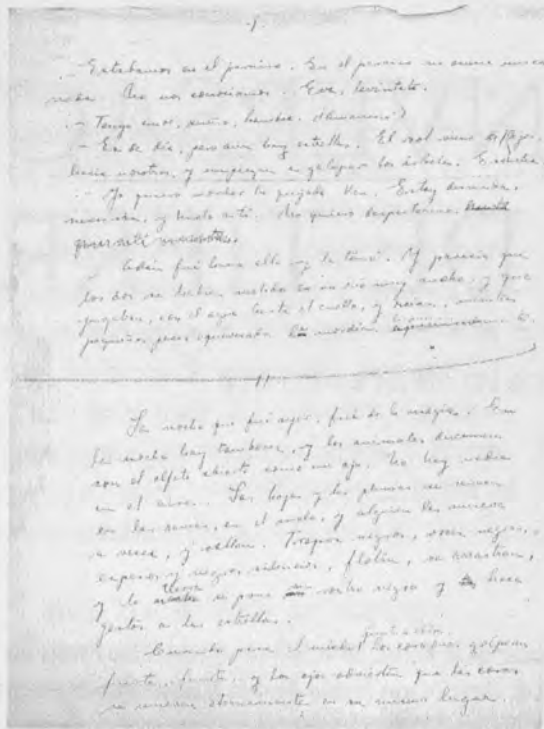 I
- Estábamos en el paraíso. En el paraíso no ocurre nunca
nada. No nos conocíamos. Eva, levántate.
- Tengo amor, sueño, hambre. ¿Amaneció?
- Es de día, pero aún hay estrellas. El sol viene de lejos
hacia nosotros, y empiezan a galopar los árboles. Escucha.
- Yo quiero morder tu quijada. Ven. Estoy desnuda,
macerada, y huelo a ti.
Adán fué hacia ella y la tomó. Y parecía que
los dos se habían metido en un río muy ancho, y que
jugaban, con el agua hasta el cuello, y reían, mientras
pequeños peces equivocados les mordían
II
La noche que fué ayer, fué de la magia. En
la noche hay tambores, y los animales duermen
con el olfato abierto como un ojo. No hay nadie
en el aire. Las hojas y las plumas se reúnen
en las ramas, en el suelo, y alguien las mueve
a veces, y callan. Trapos negros, voces negras,
espesos y negros silencios, flotan, se arrastran,
y la tierra se pone su rostro negro y hace
gestos a las estrellas.
Cuando pasa el miedo junto a ellos, los corazones golpean
fuerte, fuerte, y los ojos advierten que las cosas
se mueven eternamente en su mismo lugar.